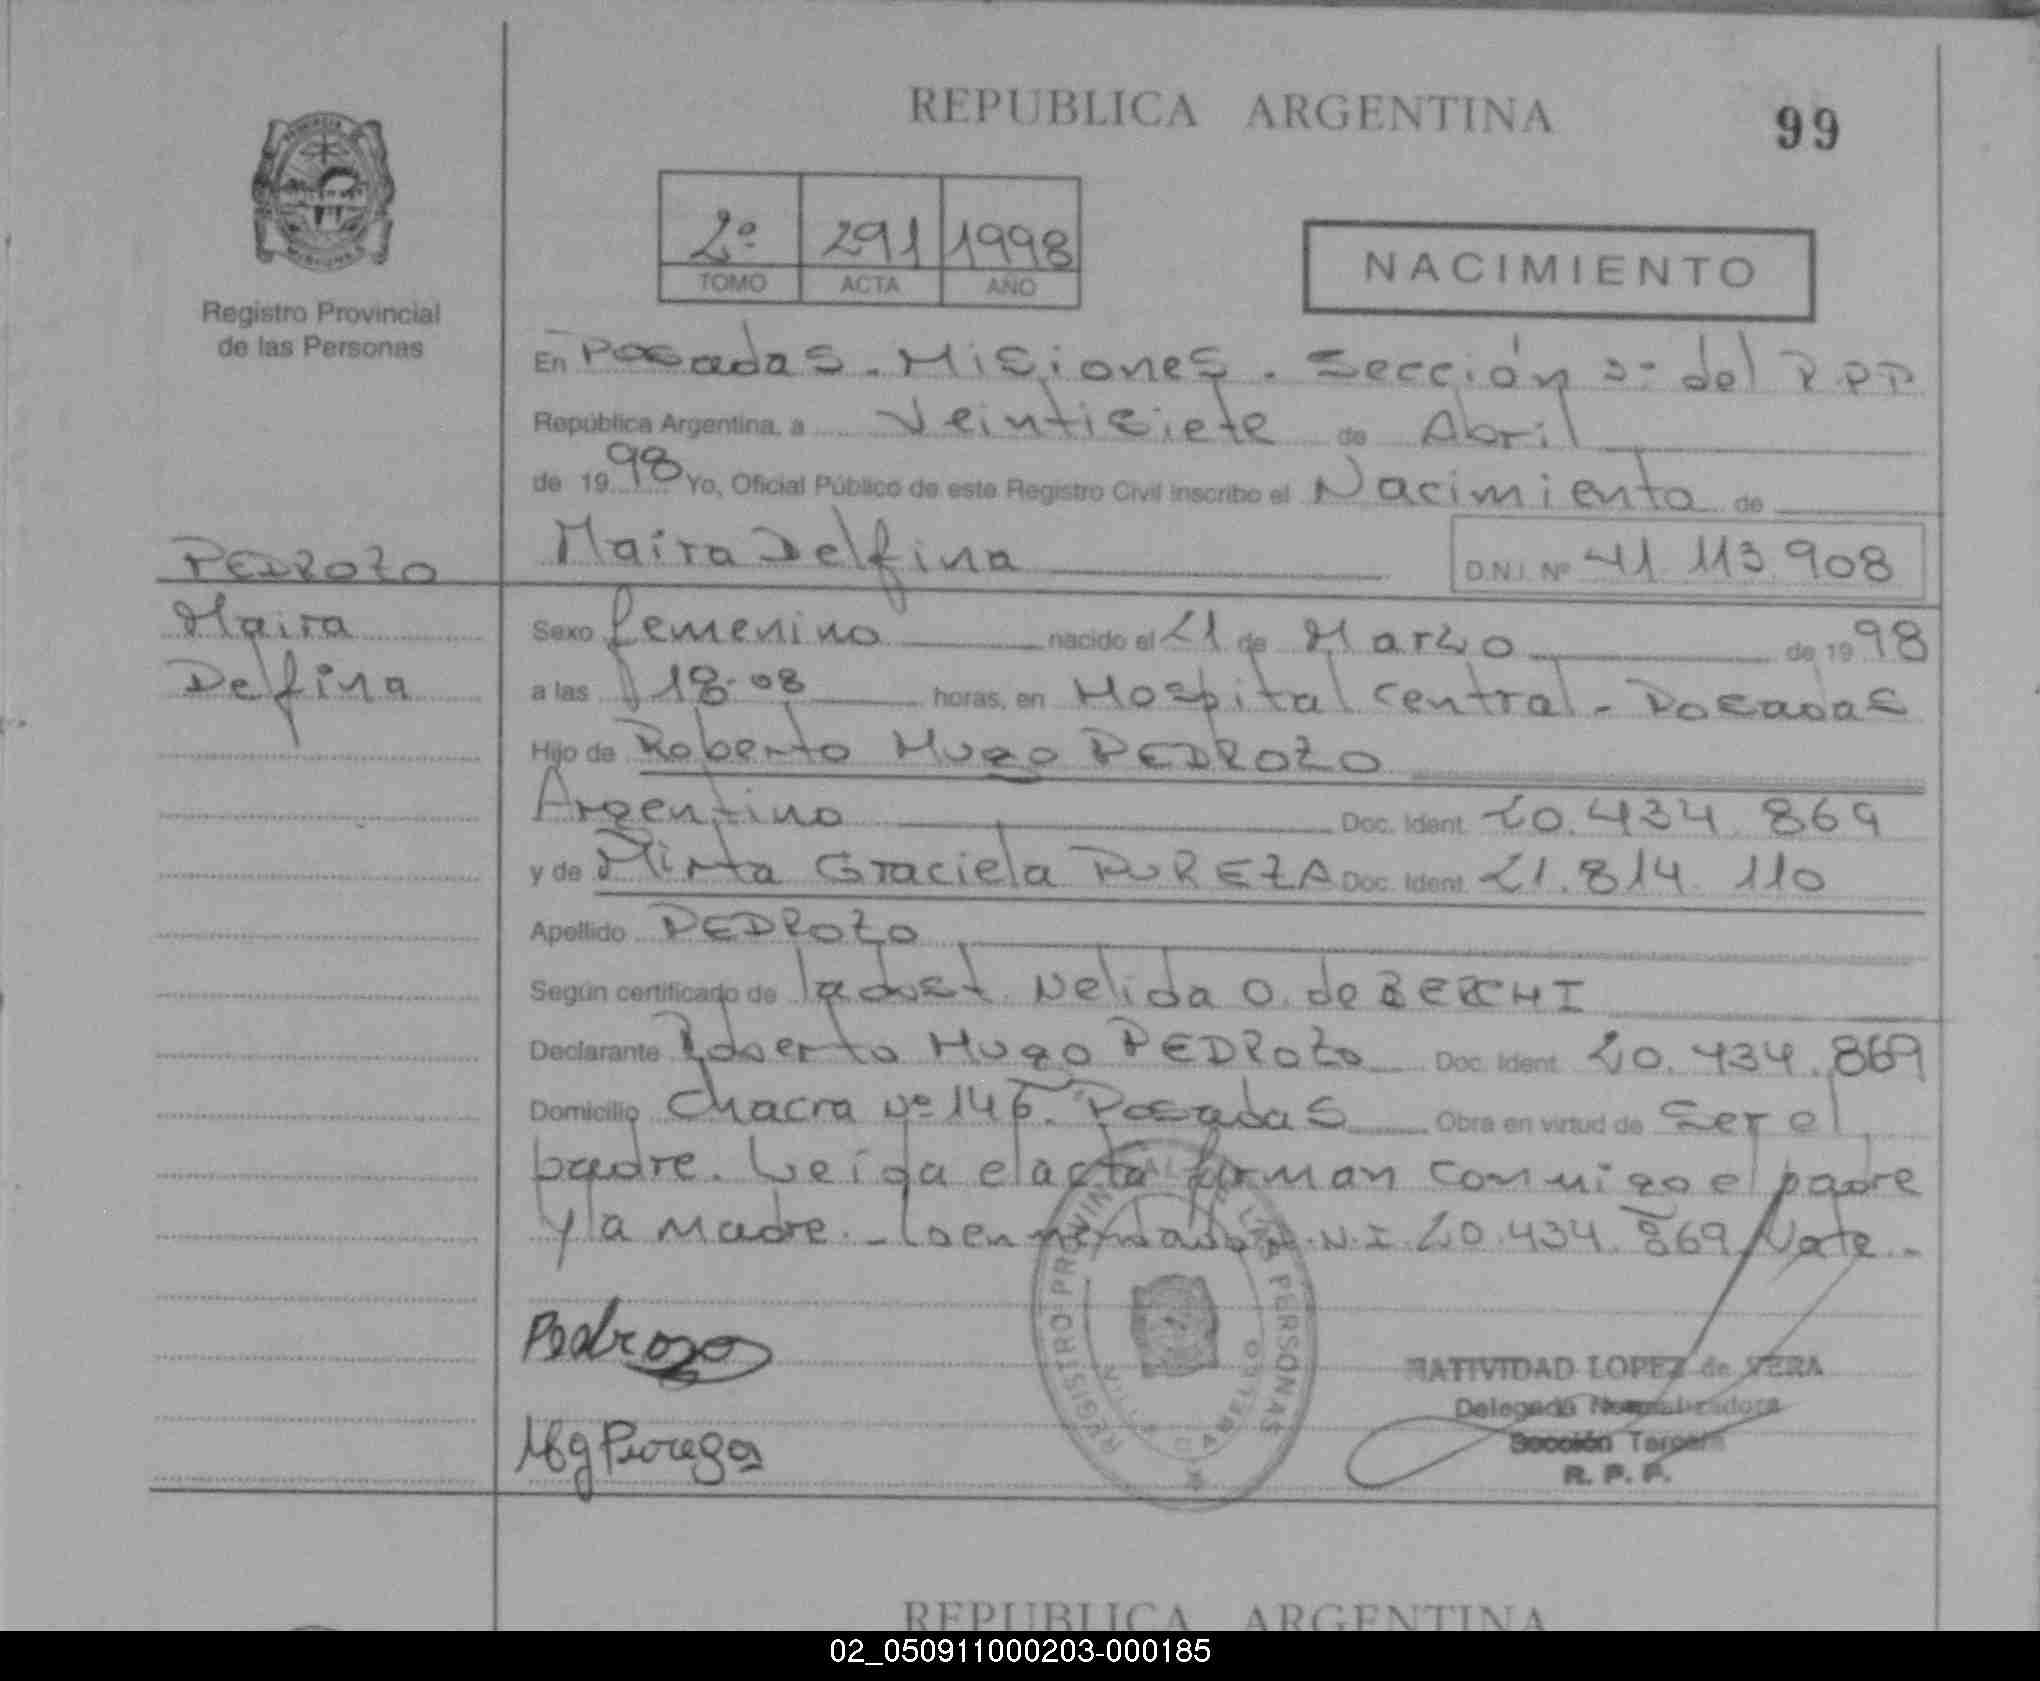 REPUBLICA ARGENTINA
99
2º 291 1998
TOMO ACTA AÑO
NACIMIENTO
Registro Provincial
de las Personas
En Posadas - Misiones. Sección 3ª del R.P.P
República Argentina, a Veintisiete de Abril
de 1998 Yo, Oficial Público de este Registro Civil inscribo el Nacimiento de
Maira Delfina D.N.I. Nº 41.113.908
PEDROZO
Maira
Delfina
Sexo femenino nacido el 21 de Marzo de 1998
a las 18:08 horas, en Hospital Central - Posadas
Hijo de Roberto Hugo PEDROZO
Argentino Doc. Ident. 20.434.869
y de Mirta Graciela PUREZA Doc. Ident. 21.814.110
Apellido PEDROZO
Según certificado de la obst. Nelida O. de BERCHI
Declarante Roberto Hugo PEDROZO Doc. Ident. 20.434.869
Domicilio Chacra Nº 146. Posadas Obra en virtud de ser el
padre. Leída el acta firman conmigo el padre
y la madre. - Lo enmendado D.N.I. 20.434.869 Vale -
Pedrozo
REGISTRO PROVINCIAL DE LAS PERSONAS
VILLA CABELLO
NATIVIDAD LOPEZ de VERA
Delegada Normalizadora
Sección Tercera
R. P. P.
REPUBLICA ARGENTINA
02_050911000203-000185